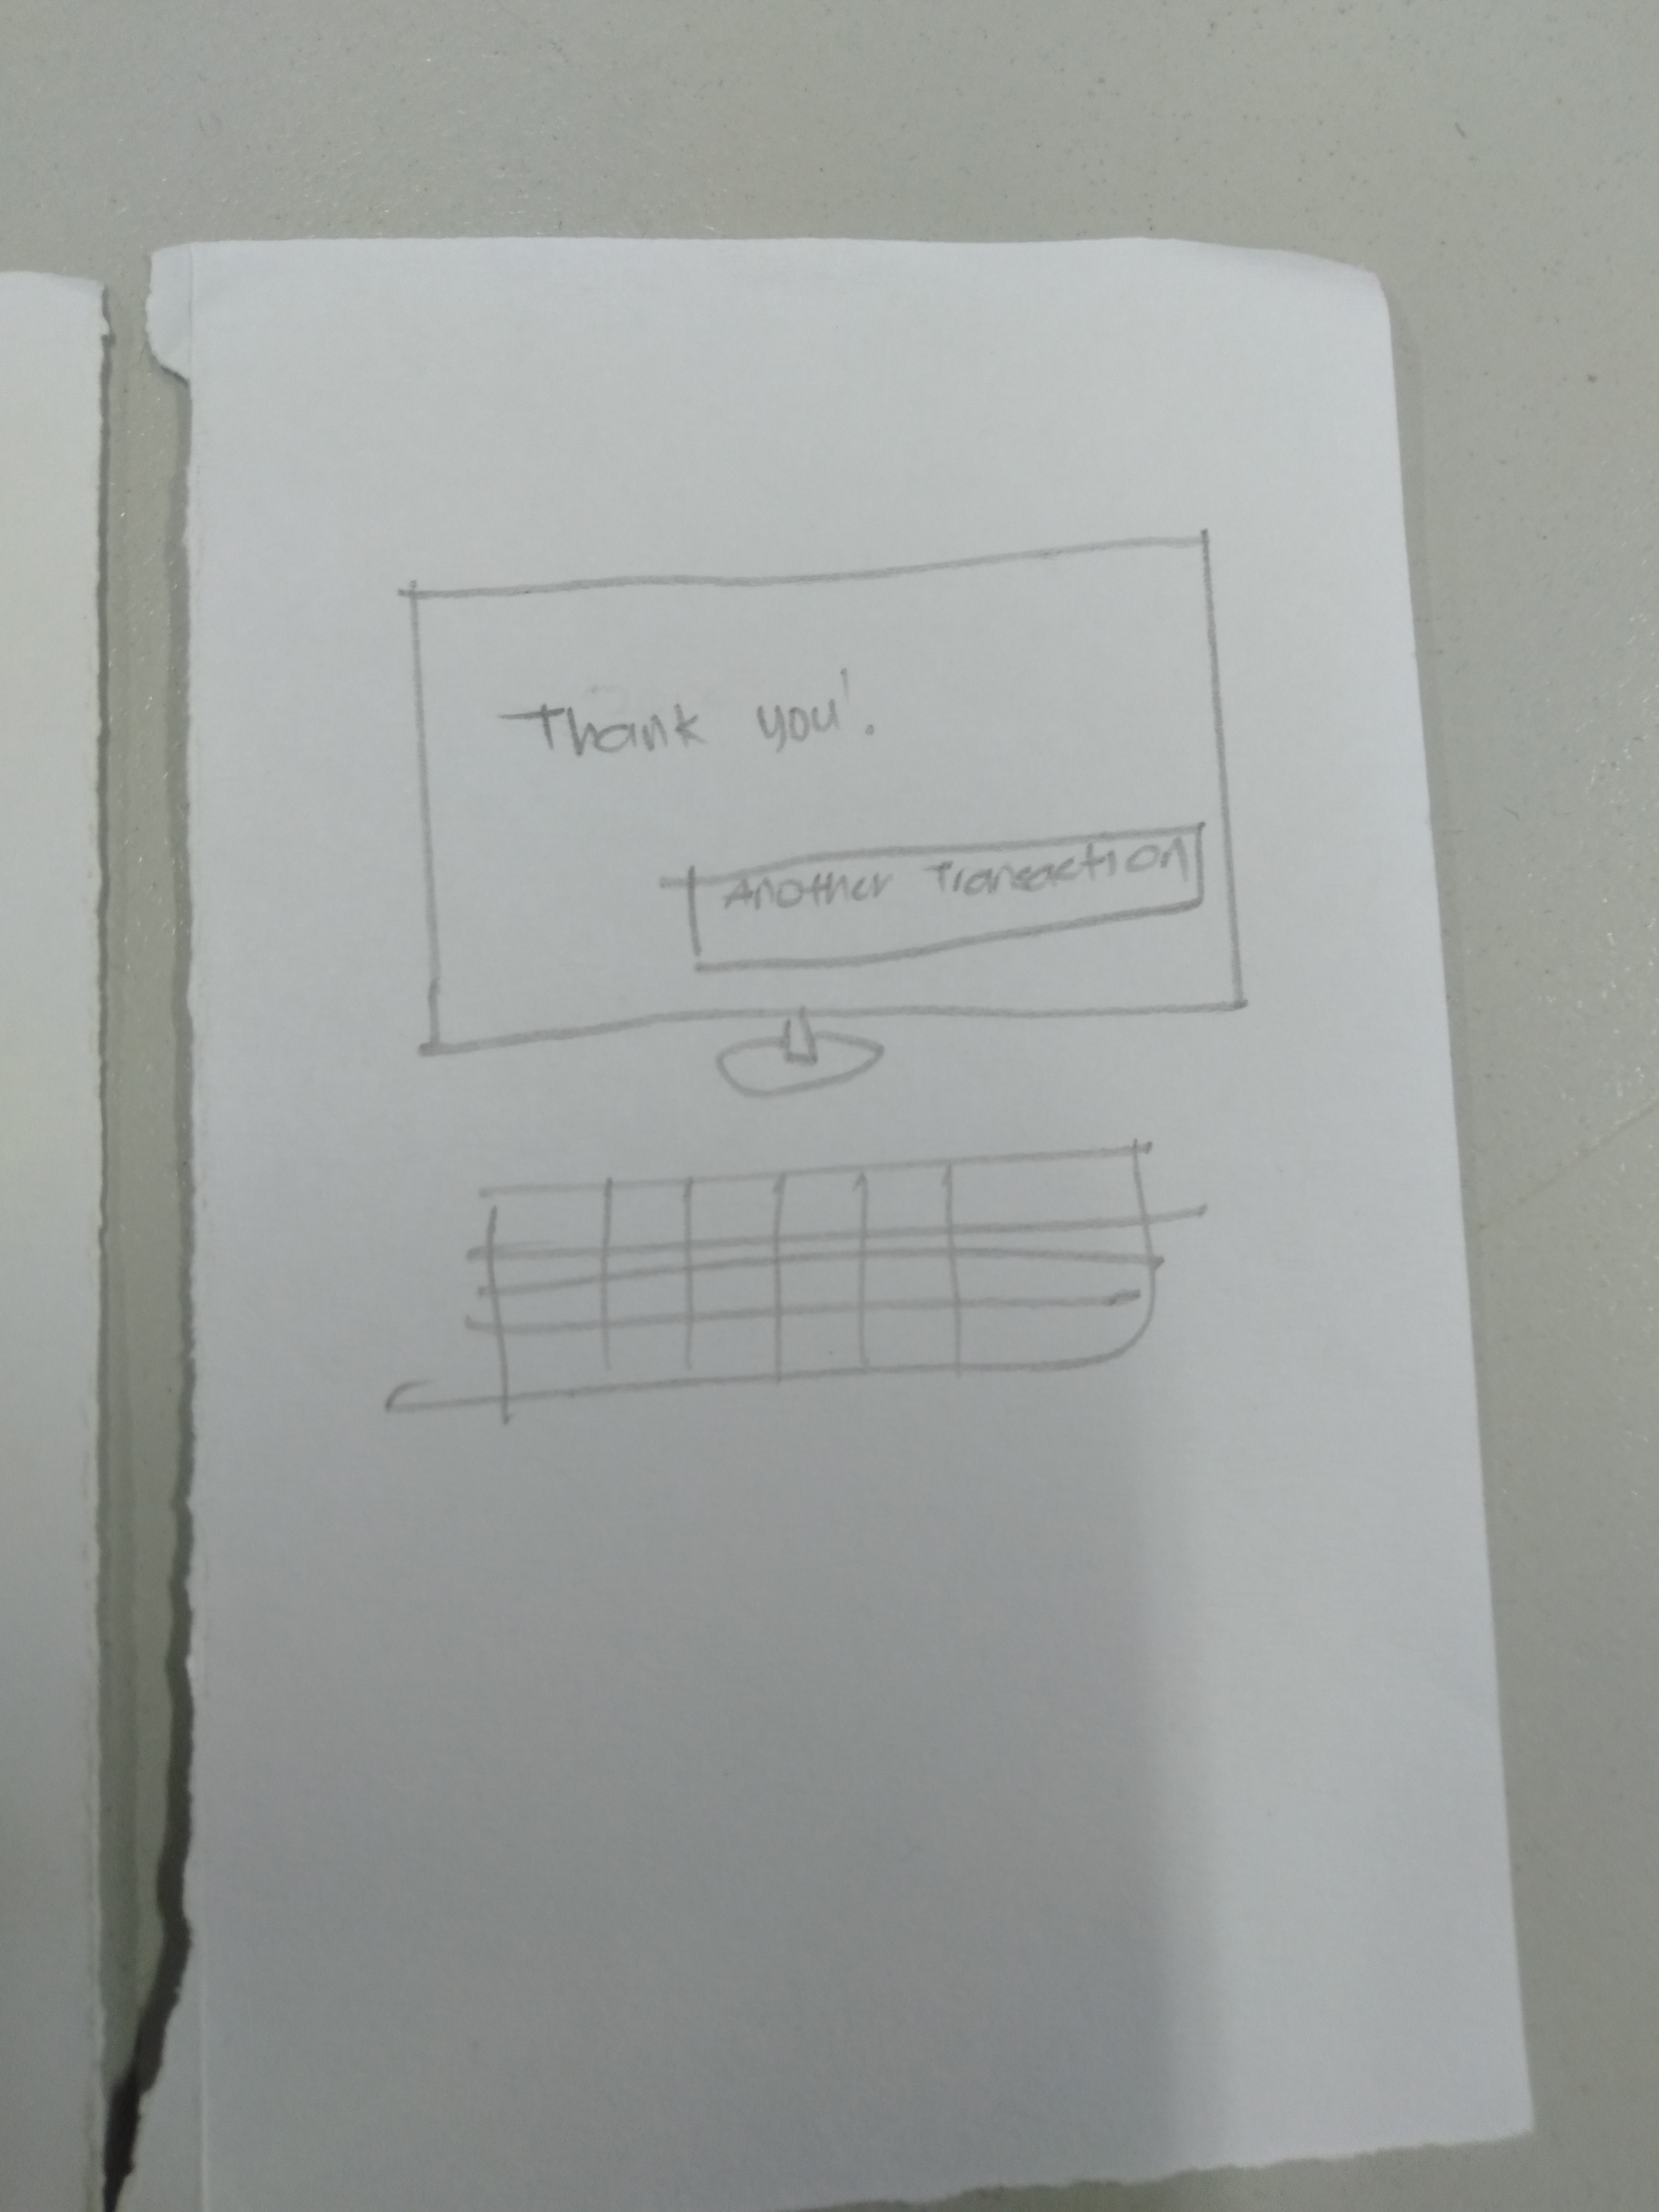 Thank you!
Another Transaction